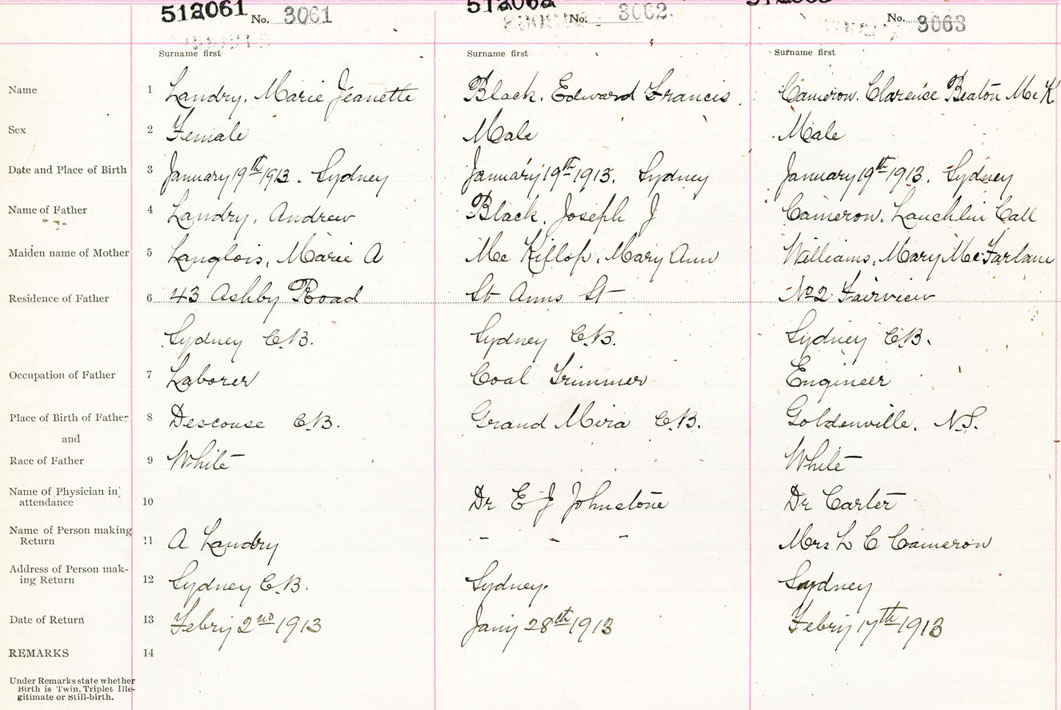 512061 No. 3061 512062 No. 3062 No. 3063
Surname first Surname first Surname first
Name 1 Landry, Marie Jeanette Black, Edward Francis Cameron, Clarence Beaton McK
Sex 2 Female Male Male
Date and Place of Birth 3 January 19th 1913. Sydney January 19th 1913. Sydney January 19th 1913. Sydney
Name of Father 4 Landry, Andrew Black, Joseph J Cameron, Lauchlin Call
Maiden name of Mother 5 Langlois, Marie A McKillop, Mary Ann Williams, Mary McFarlane
Residence of Father 6 43 Ashby Road St Anns St No 2 Fairview
Sydney C.B. Sydney C.B. Sydney C.B.
Occupation of Father 7 Laborer Coal Trimmer Engineer
Place of Birth of Father 8 Descouse C.B. Grand Mira C.B. Goldenville, N.S.
and
Race of Father 9 White White
Name of Physician in attendance 10 Dr E J Johnstone Dr Carter
Name of Person making Return 11 A Landry - - - Mrs L C Cameron
Address of Person mak-ing Return 12 Sydney C.B. Sydney. Sydney
Date of Return 13 Febry 2nd 1913 Jany 28th 1913 Febry 17th 1913
REMARKS 14
Under Remarks state whether
Birth is Twin, Triplet Ille-
gitimate or Still-birth.